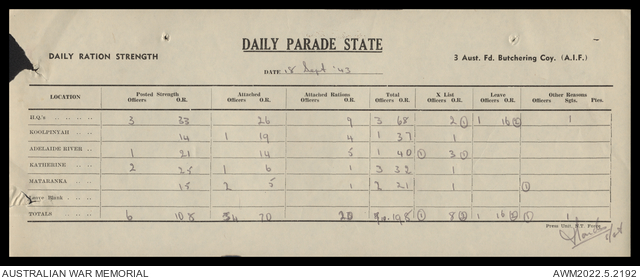 DAILY PARADE STATE
DAILY RATION STRENGTH
3 Aust. Fd. Butchering Coy. (A.I.F.)
DATE 18 Sept '43
LOCATION Posted Strength Attached Attached Rations Total X List Leave Other Reasons
Officers O.R. Officers O.R. Officers O.R. Officers O.R. Officers O.R. Officers O.R. Officers Sgts. Ptes.
H.Q.'s 3 33 26 9 3 68 2 1 1 16 1
KOOLPINYAH 14 1 19 4 1 37 1
ADELAIDE RIVER 1 21 14 5 1 40 1 3 1
KATHERINE 2 25 1 6 1 3 32 1
MATARANKA 15 2 5 1 2 21 1
Leave Blank
TOTALS 6 108 4 70 20 10 198 1 8 1 16 1 1
Press Unit, N.T. Force
AUSTRALIAN WAR MEMORIAL
AWM2022.5.2192